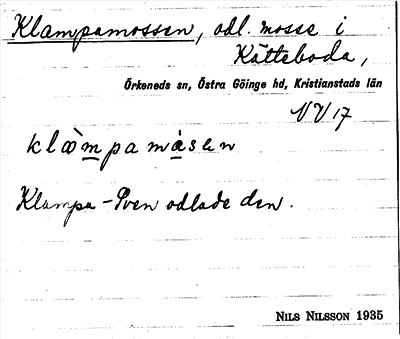 Klampamossen, odl. mosse i
Kätteboda,
Örkeneds sn, Östra Göinge hd, Kristianstads län
NV 17
Klampa-Sven odlade den.
NILS NILSSON 1935